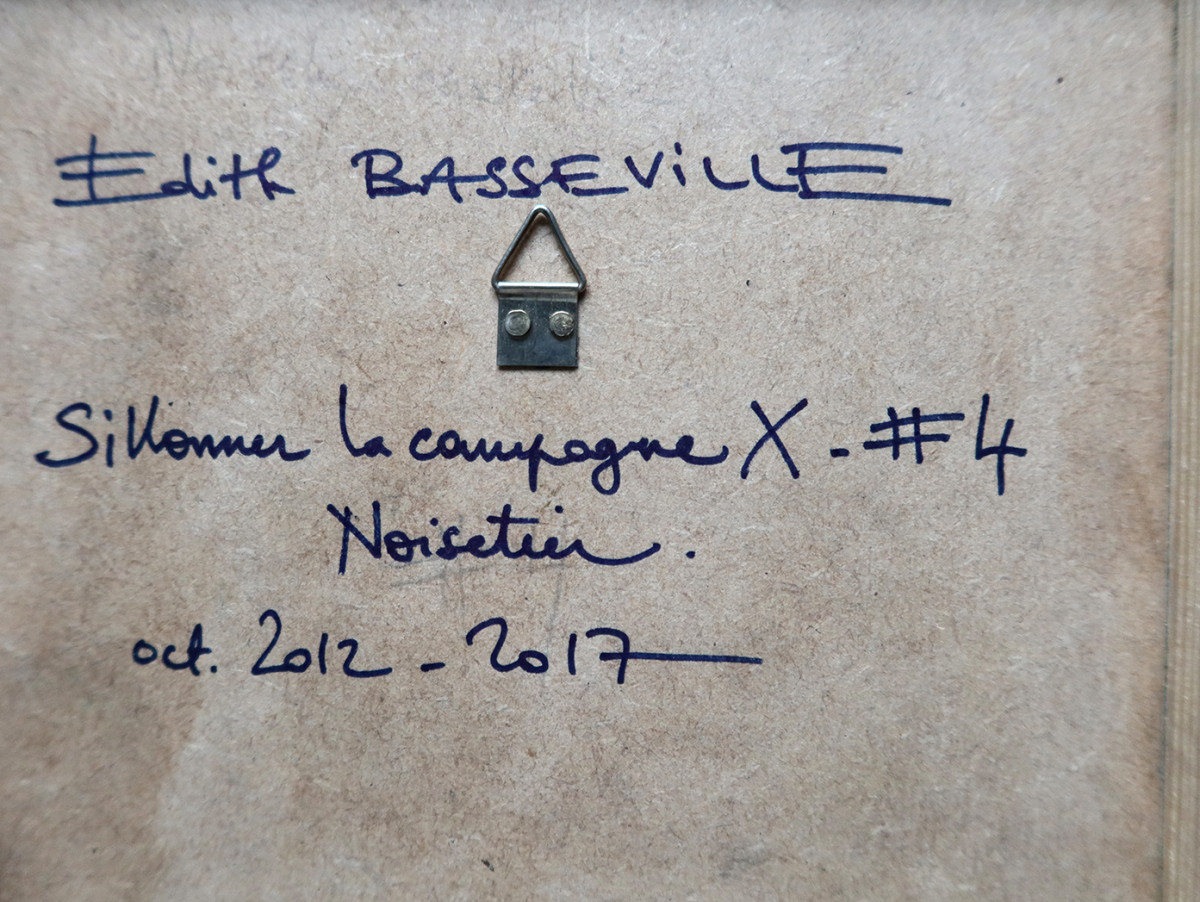 Edith BASSEViLLE
Sillonner la campagne X - #4
Noisetier.
oct. 2012 - 2017